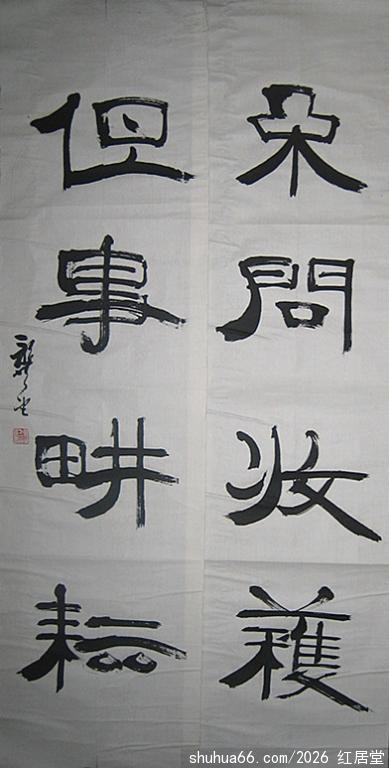 問收穫
但事畊耘
龔望
shuhua66.com/2026 红居堂